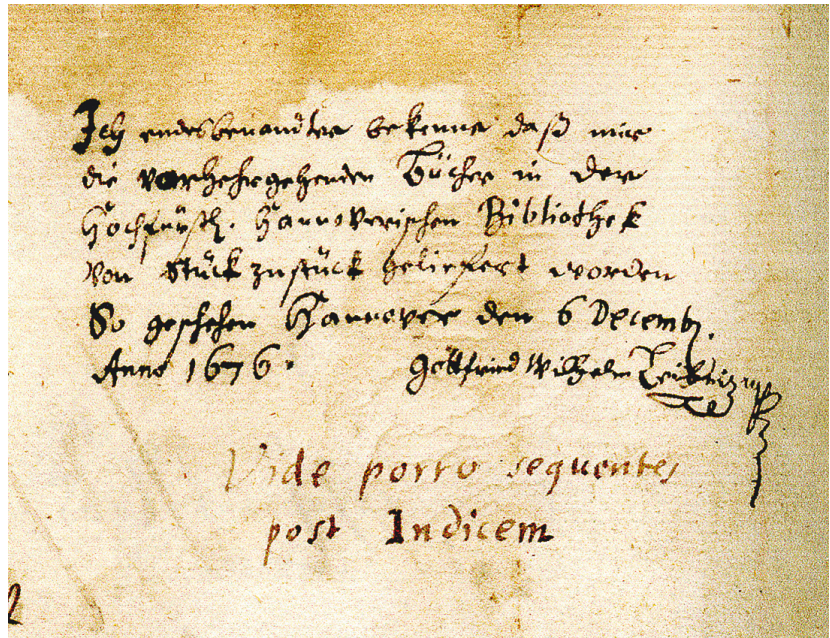 Ich endesbenandter bekenne daß mir
die vorhehrgehenden Bücher in der
Hochfürstl. Hannoverischen Bibliothek
von Stück zu stück geliefert worden
So geschehen Hannover den 6 Decembr.
Anno 1676. Gottfried Wilhelm Leibniz mp
Vide porro sequentes
post Indicem